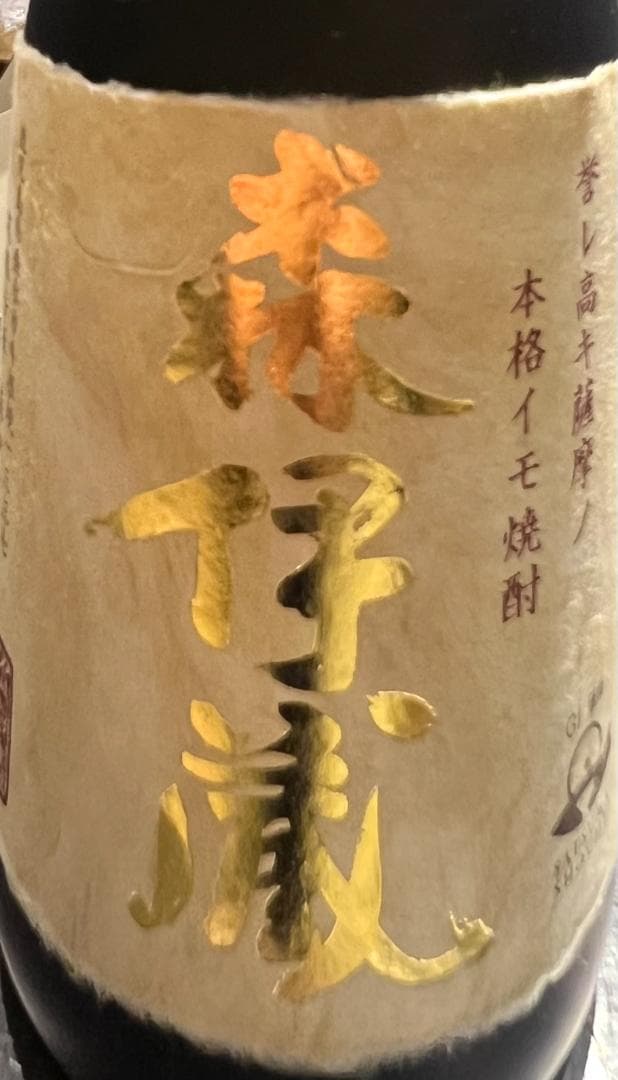 誉レ高キ薩摩ノ
本格イモ焼酎
森伊蔵
GI 薩摩